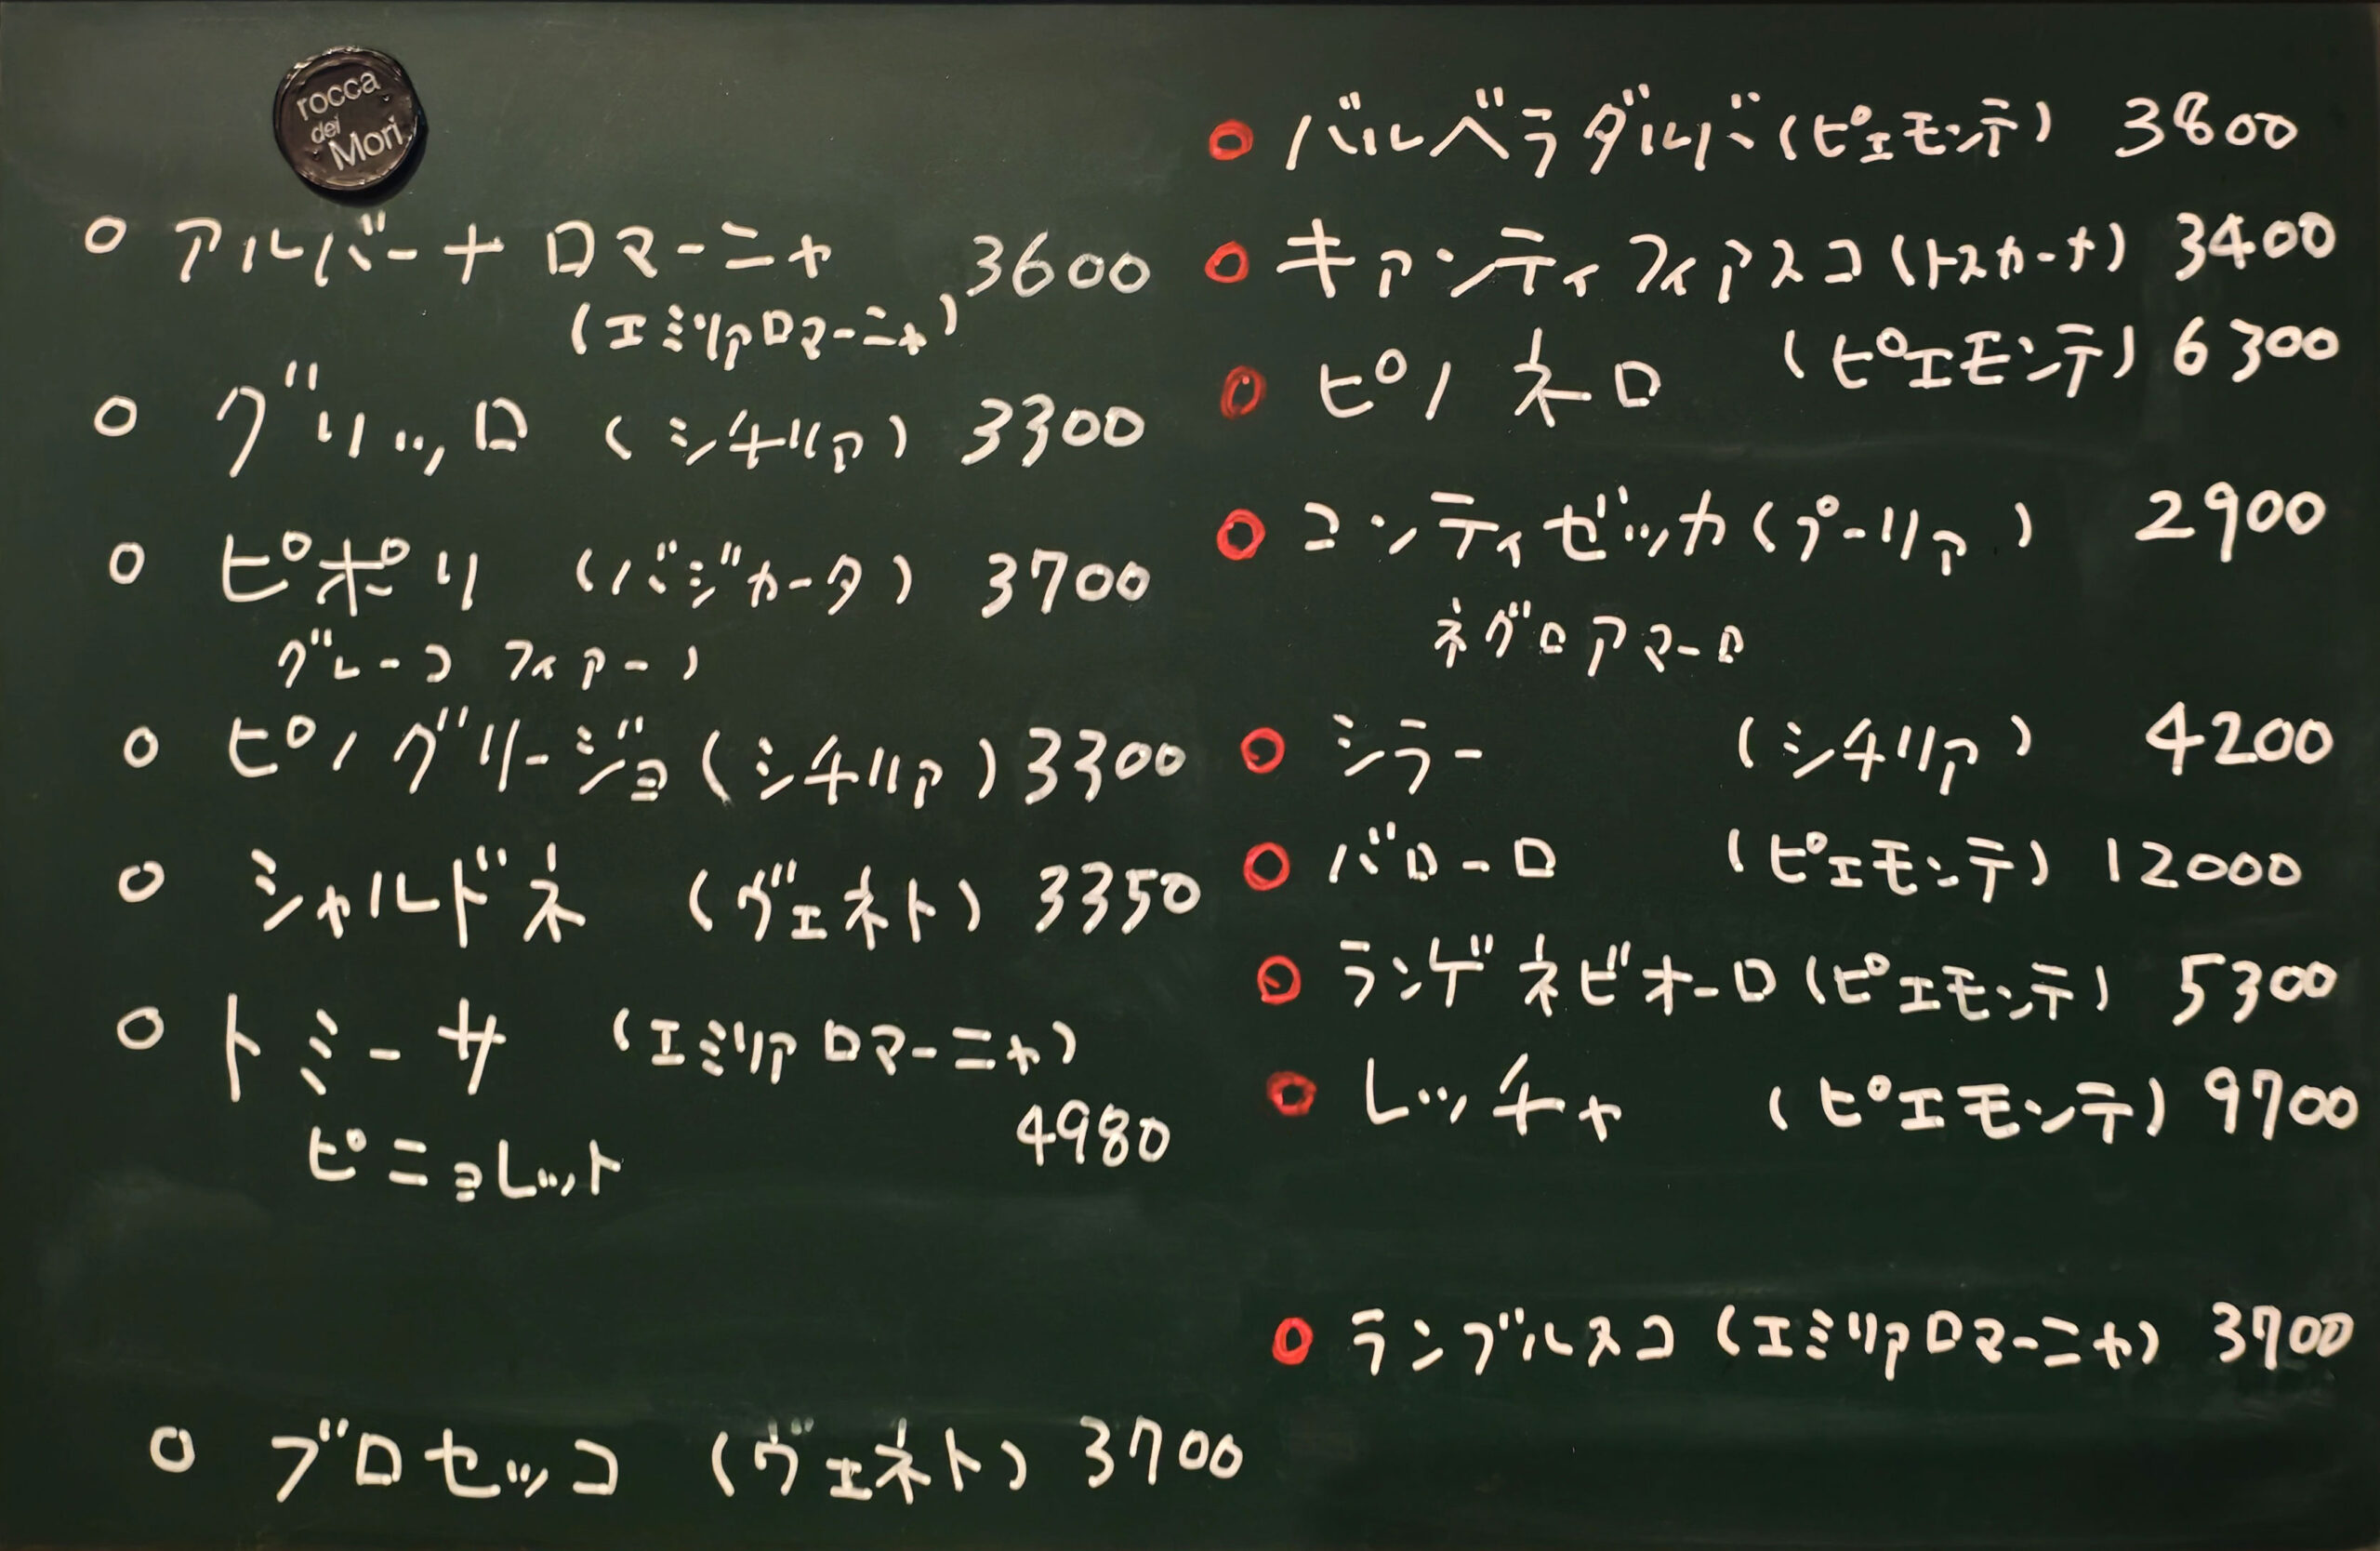 rocca
dei
Mori
○ アルバーナ ロマーニャ 3600
(エミリアロマーニャ)
○ グリッロ (シチリア) 3300
○ ピポリ (バジカータ) 3700
グレーコ フィアーノ
○ ピノグリージョ(シチリア) 3300
○ シャルドネ (ヴェネト) 3350
○ トミーサ (エミリアロマーニャ)
4980
ピニョレット
○ ブロセッコ (ヴェネト) 3700
○ バルベラダルバ(ピエモンテ) 3800
○ キァンティ フィアスコ(トスカーナ) 3400
○ ピノ ネロ (ピエモンテ) 6300
○ コンティゼッカ(プーリア) 2900
ネグロアマーロ
○ シラー (シチリア) 4200
○ バローロ (ピエモンテ) 12000
○ ランゲ ネビオーロ(ピエモンテ) 5300
○ レッチャ (ピエモンテ) 9700
○ ランブルスコ(エミリアロマーニャ) 3700